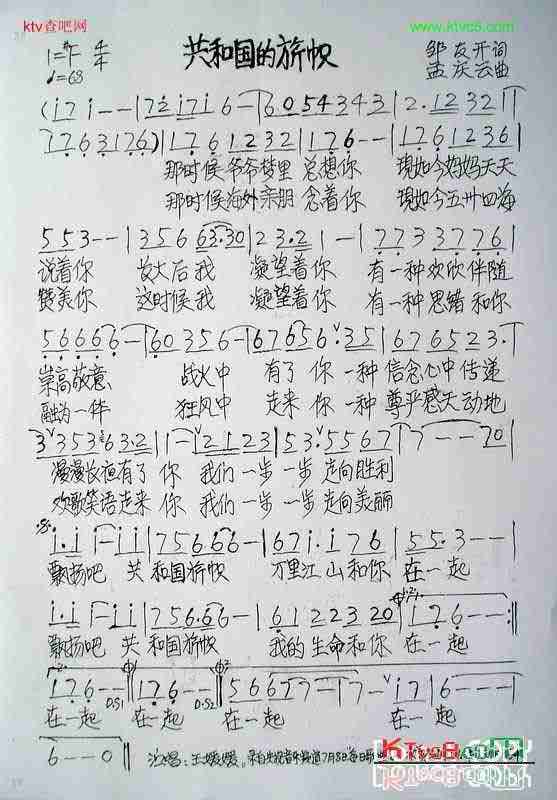 ktv查吧网
www.ktvc8.com
共和国的旗帜
1=♯F 4/4
♩=68
邹友开词
孟庆云曲
(i 7 i - - | 7 i i 7 i 6 - | 6 0 5 4 3 4 3 | 2 . 1 2 3 2 |
7 7 6 3 1 7 6) | 1 7 6 1 2 3 2 | 1 7 6 - - | 1 7 6 1 2 3 6 |
那时候爷爷梦里 总想你 现如今妈妈天天
那时候海外亲朋 念着你 现如今五州四海
5 5 3 - - | 3 5 6 6 3 . 3 0 | 2 3 . 2 1 - | 7 7 3 3 7 7 6 |
说着你 长大后我 凝望着你 有一种欢欣伴随
赞美你 这时候我 凝望着你 有一种思绪和你
5 6 6 6 6 6 - | 6 0 3 5 6 - | 6 7 6 5 6 3 5 | 6 7 6 5 2 3 .
崇高敬意 战火中 有了你 一种信念心中传递
融为一体 狂风中 走来你 一种尊严感天动地
3 3 5 3 5 6 3 2 | 1 - 2 1 2 3 | 5 3 . 5 5 6 7 | 7 - - 7 0 |
漫漫长夜有了你 我们一步一步走向胜利
欢歌笑语走来你 我们一步一步走向美丽
i . i i - i i | 7 5 6 6 6 - | 6 7 i . i 7 6 | 5 5 . 3 - - |
飘扬吧 共和国旗帜 万里江山和你在一起
i . i i - i i | 7 5 6 . 6 6 - | 6 1 2 2 3 2 0 | 1 7 6 - - :||
飘扬吧 共和国旗帜 我的生命和你在一起
1 7 6 - - D.S1 | 1 7 6 - - D.S2 | 5 6 6 7 7 - | 7 - i 7 | 6 - - - |
在一起 在一起 在一起 在一起
6 - - 0 ||
演唱：王媛媛。录自央视音乐频道7月8日每日
KTvc8